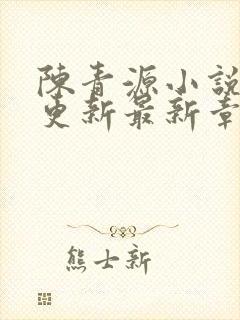 陳青源小說
更新最新章
熊士新